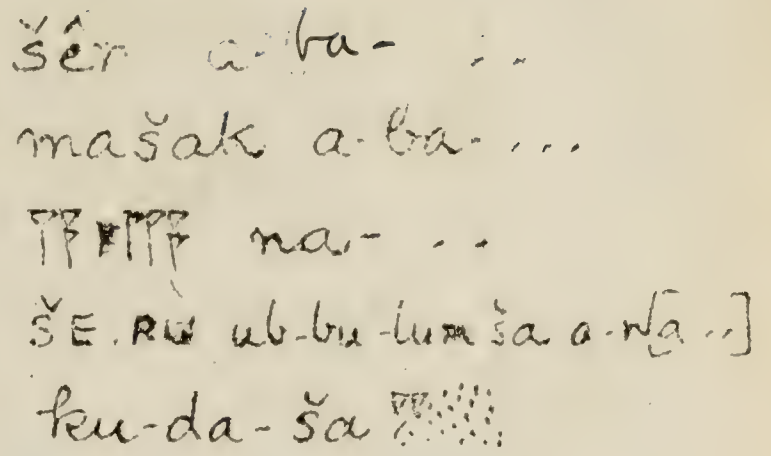 šêr a-ba- ..
mašak a-ba- ...
na- ..
ŠE.RU ub-bu-lum ša a-n[a ..]
ku-da-ša